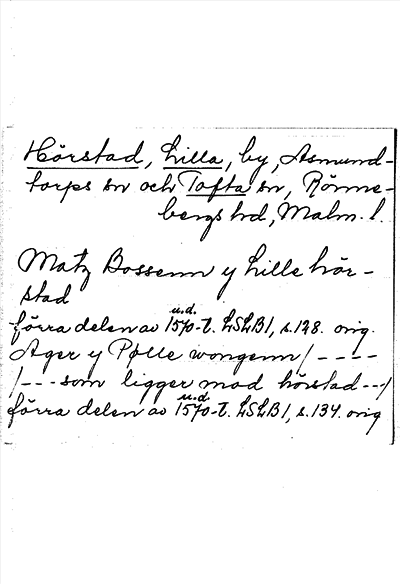 Hörstad, Lilla, by, Asmund-
torps sn och Tofta sn, Rönne-
bergs hd, Malm. l.
Matz Bossenn y Lille hör-
stad
u.d.
förra delen av 1570-t. LSLB1, s. 128. orig.
Ager y Pølle wongenn/----
/---som ligger mod hörstad--/
u.d.
förra delen av 1570-t. LSLB1, s. 134. orig